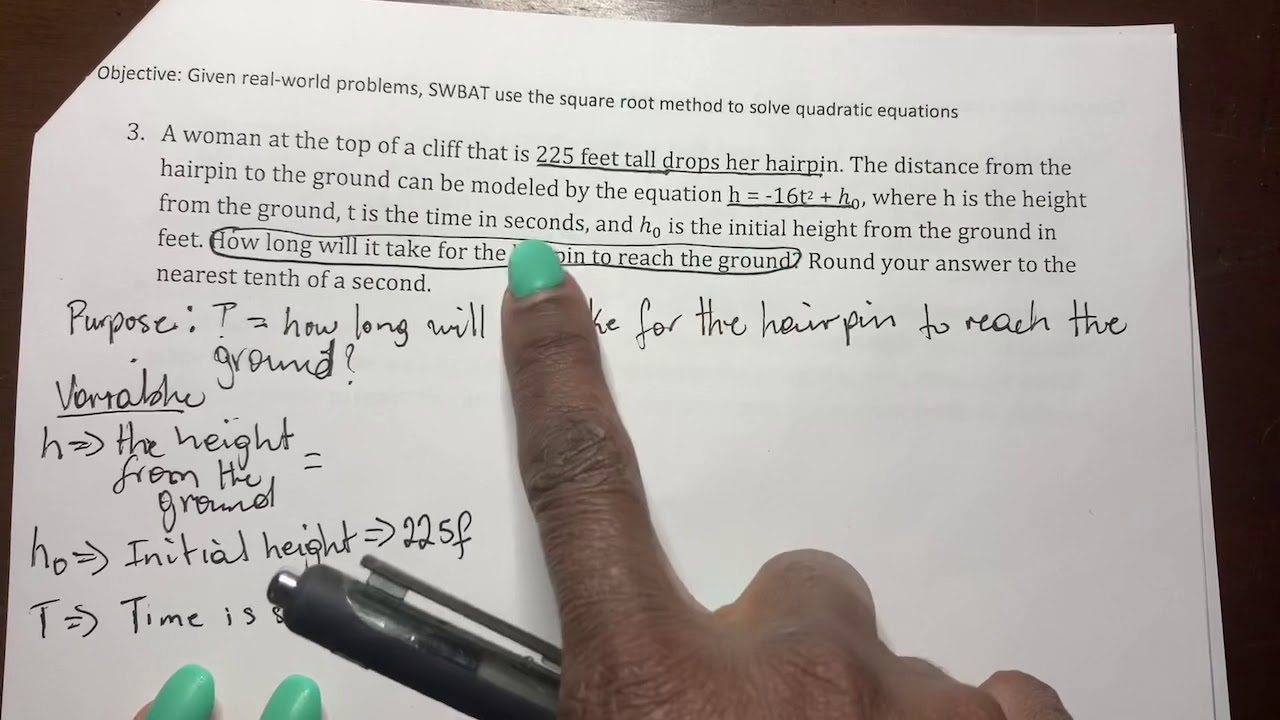 Objective: Given real-world problems, SWBAT use the square root method to solve quadratic equations
3. A woman at the top of a cliff that is 225 feet tall drops her hairpin. The distance from the
hairpin to the ground can be modeled by the equation h = -16t² + h₀, where h is the height
from the ground, t is the time in seconds, and h₀ is the initial height from the ground in
feet. How long will it take for the to reach the ground? Round your answer to the
nearest tenth of a second.
Purpose: T = how long will for the hairpin to reach the
ground?
Variable
h => the height =
from the
ground
h₀ => Initial height => 225f
T => Time is